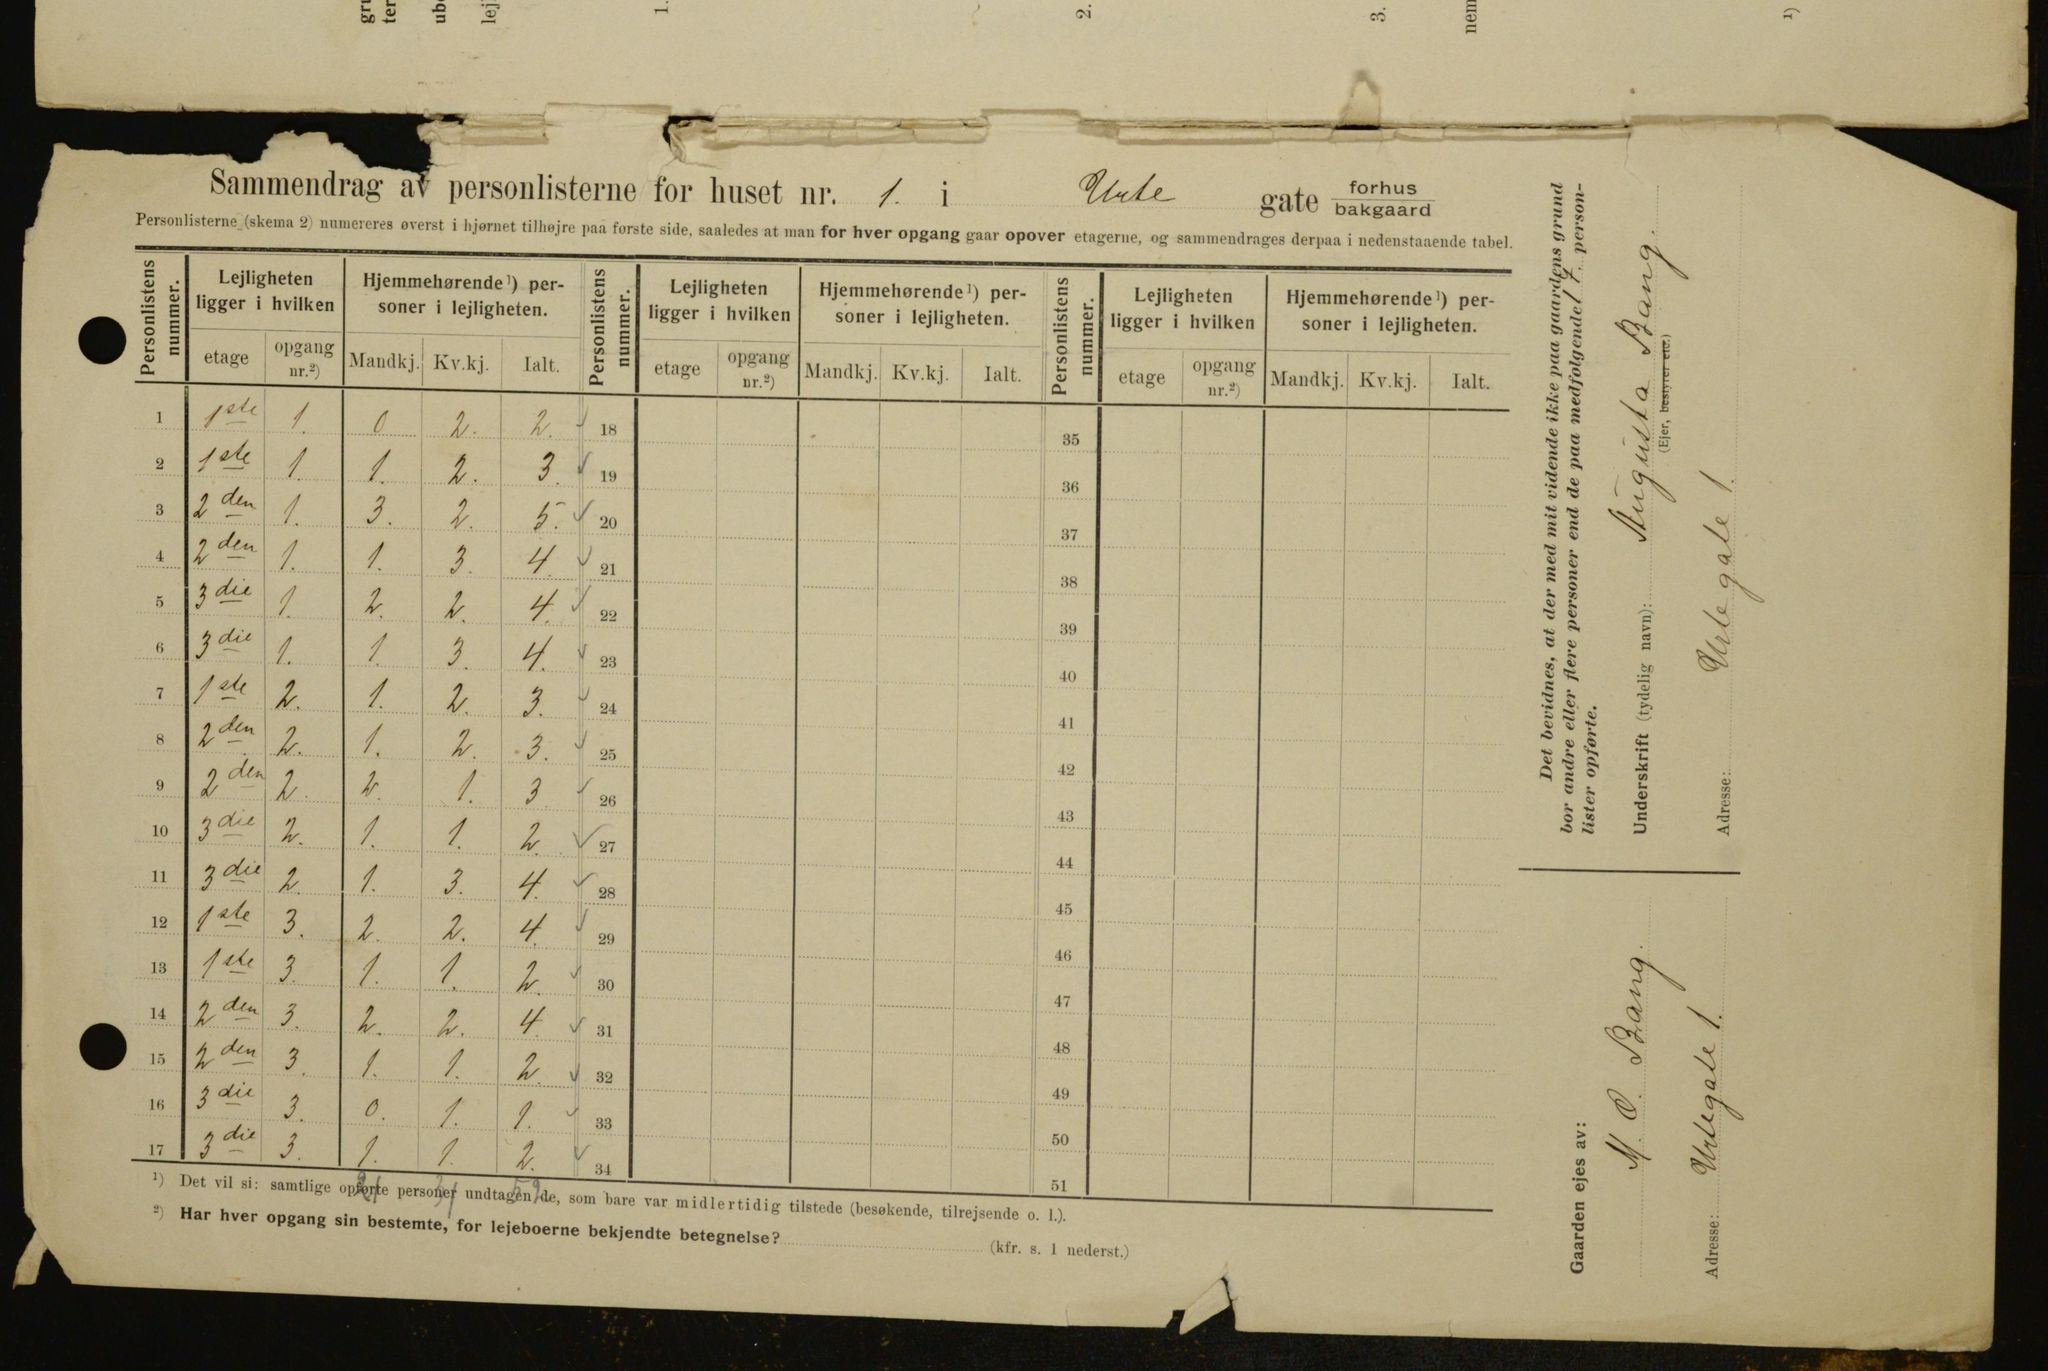 gru
ter
ube
lej
1.
2.
3.
nem
1)
Sammendrag av personlisterne for huset nr. 1. i Urte gate forhus bakgaard
Personlisterne (skema 2) numereres øverst i hjørnet tilhøjre paa første side, saaledes at man for hver opgang gaar opover etagerne, og sammendrages derpaa i nedenstaaende tabel.
Personlistens nummer. Lejligheten ligger i hvilken Hjemmehørende¹) personer i lejligheten. Personlistens nummer. Lejligheten ligger i hvilken Hjemmehørende¹) personer i lejligheten. Personlistens nummer. Lejligheten ligger i hvilken Hjemmehørende¹) personer i lejligheten.
etage opgang nr.²) Mandkj. Kv.kj. Ialt. etage opgang nr.²) Mandkj. Kv.kj. Ialt. etage opgang nr.²) Mandkj. Kv.kj. Ialt.
1 1ste 1. 0 2. 2. ✓ 18 35
2 1ste 1. 1. 2. 3. ✓ 19 36
3 2den 1. 3. 2. 5. ✓ 20 37
4 2den 1. 1. 3. 4. ✓ 21 38
5 3die 1. 2. 2. 4. ✓ 22 39
6 3die 1. 1. 3. 4. ✓ 23 40
7 1ste 2. 1. 2. 3. ✓ 24 41
8 2den 2. 1. 2. 3. ✓ 25 42
9 2den 2. 2. 1. 3. ✓ 26 43
10 3die 2. 1. 1. 2. ✓ 27 44
11 3die 2. 1. 3. 4. ✓ 28 45
12 1ste 3. 2. 2. 4. ✓ 29 46
13 1ste 3. 1. 1. 2. ✓ 30 47
14 2den 3. 2. 2. 4. ✓ 31 48
15 2den 3. 1. 1. 2. ✓ 32 49
16 3die 3. 0. 1. 1. ✓ 33 50
17 3die 3. 1. 1. 2. ✓ 34 51
21 31 52
¹) Det vil si: samtlige opførte personer undtagen de, som bare var midlertidig tilstede (besøkende, tilrejsende o. l.).
²) Har hver opgang sin bestemte, for lejeboerne bekjendte betegnelse? (kfr. s. 1 nederst.)
Det bevidnes, at der med mit vidende ikke paa gaardens grund
bor andre eller flere personer end de paa medfølgende 17 person-
lister opførte.
Underskrift (tydelig navn): Augusta Bang.
(Ejer, bestyrer etc.)
Adresse: Urtegate 1.
Gaarden ejes av:
M. O. Bang.
Adresse: Urtegate 1.